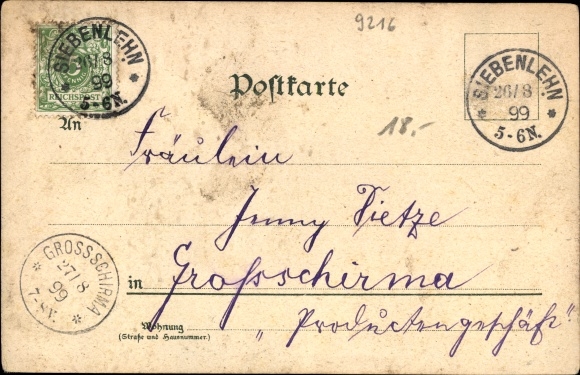 9216
SIEBENLEHN
26/8
99
5-6N.
REICHSPOST
Postkarte
SIEBENLEHN
26/8
99
5-6N.
18.-
An
Fräulein
Jenny Tietze
in Grossschirma
GROSSSCHIRMA
27/8
99
7-8V.
Wohnung
(Straße und Hausnummer.)
„Productengeschäft"